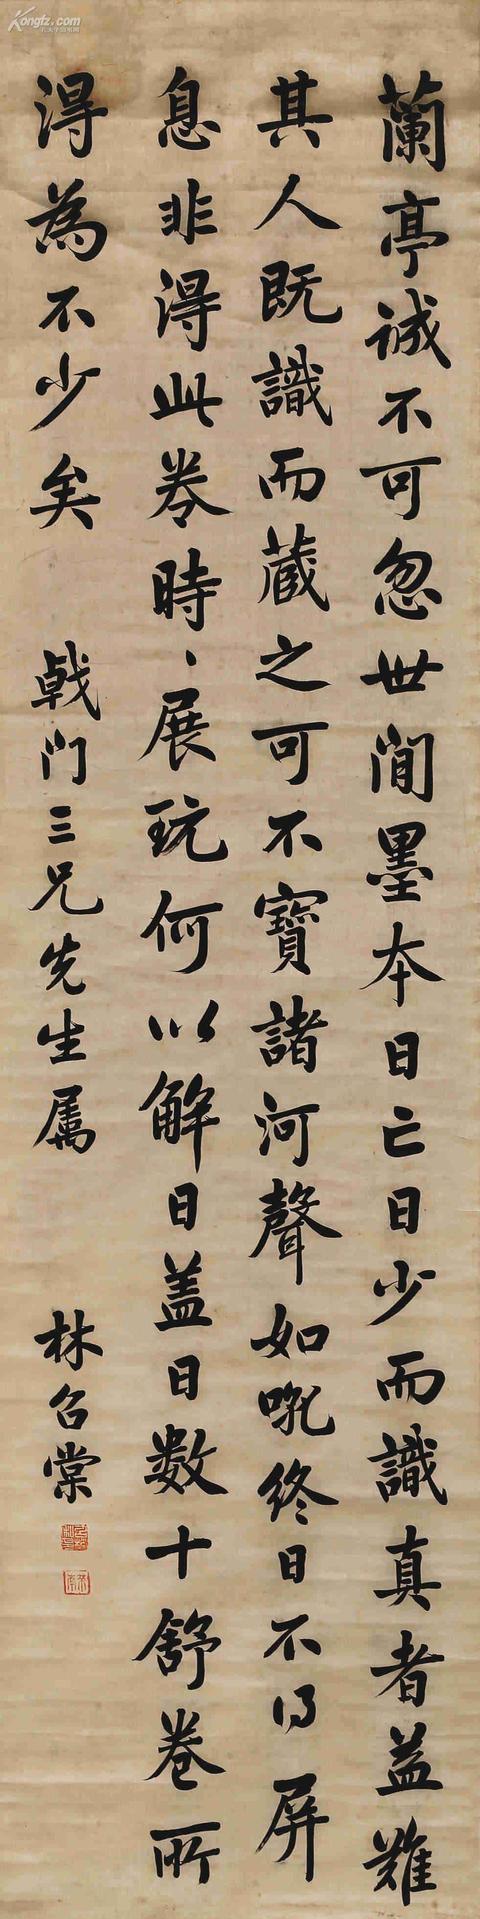 蘭亭誠不可忽世間墨本日亡日少而識真者益難
其人既識而蔵之可不寶諸河聲如吼終日不得屏
息非得此卷時、展玩何以解日盖日數十舒卷所
得為不少矣
戟门三兄先生屬
林召棠
Kongtz.com